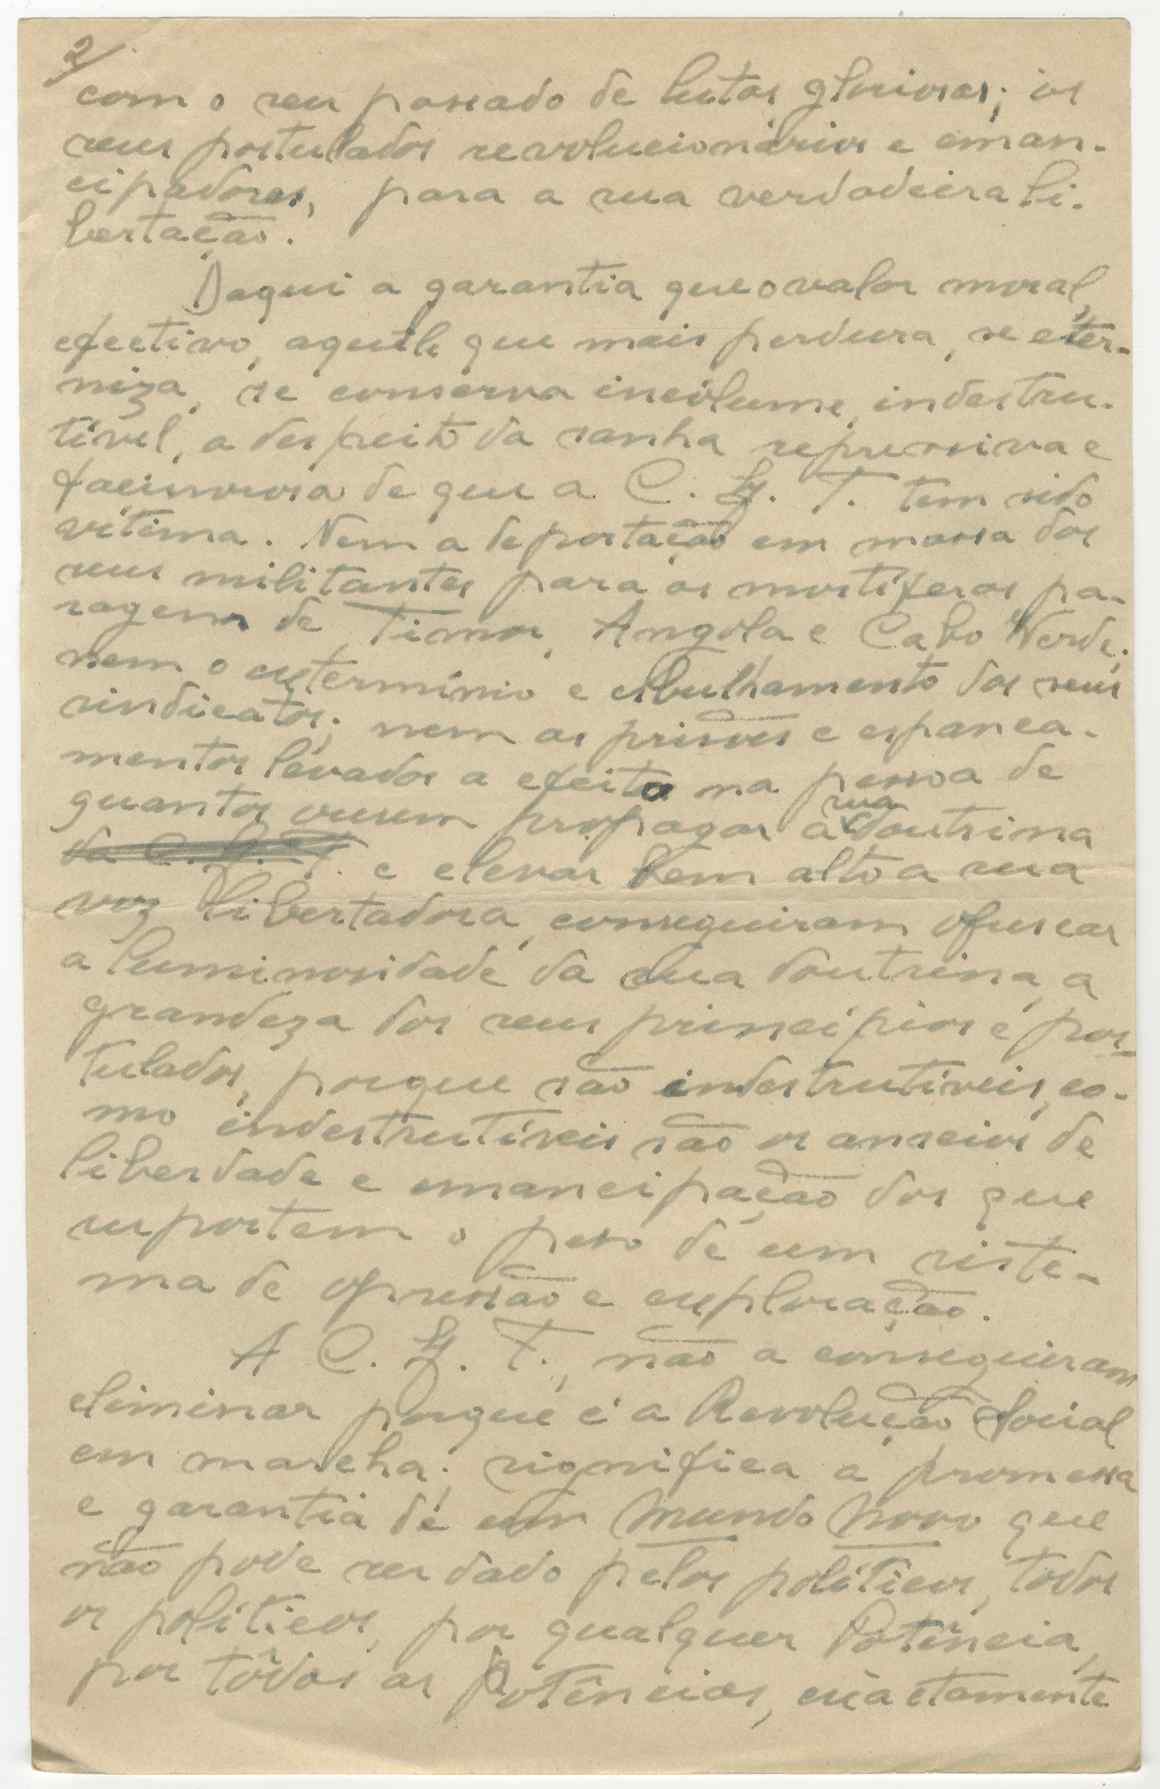 2/
com o seu passado de lutas gloriosas; os
seus postulados revolucionários e eman-
cipadores, para a sua verdadeira li-
bertação.
Daqui a garantia que o valor moral,
efectivo, aquele que mais perdura, se eter-
niza, se conserva incólume, indestru-
tível, a despeito da sanha repressiva e
facinorosa de que a C. G. T. tem sido
vítima. Nem a deportação em massa dos
seus militantes para as mortíferas pa-
ragens de Timor, Angola e Cabo Verde;
nem o extermínio e esbulhamento dos seus
sindicatos; nem as prisões e espanca-
mentos levados a efeito na pessoa de
quantos ousem propagar a sua doutrina
da C. G. T. e elevar bem alto a sua
voz libertadora, conseguiram ofuscar
a luminosidade da sua doutrina, a
grandeza dos seus princípios e pos-
tulados, porque são indestrutíveis, co-
mo indestrutíveis são os anseios de
liberdade e emancipação dos que
suportem o peso de um siste-
ma de opressão e exploração.
A C. G. T., não a conseguiram
eliminar porque é a Revolução Social
em marcha; significa a promessa
e garantia de um Mundo Novo que
não pode ser dado pelos políticos, todos
os políticos, por qualquer Potência,
por tôdas as Potências, exàctamente